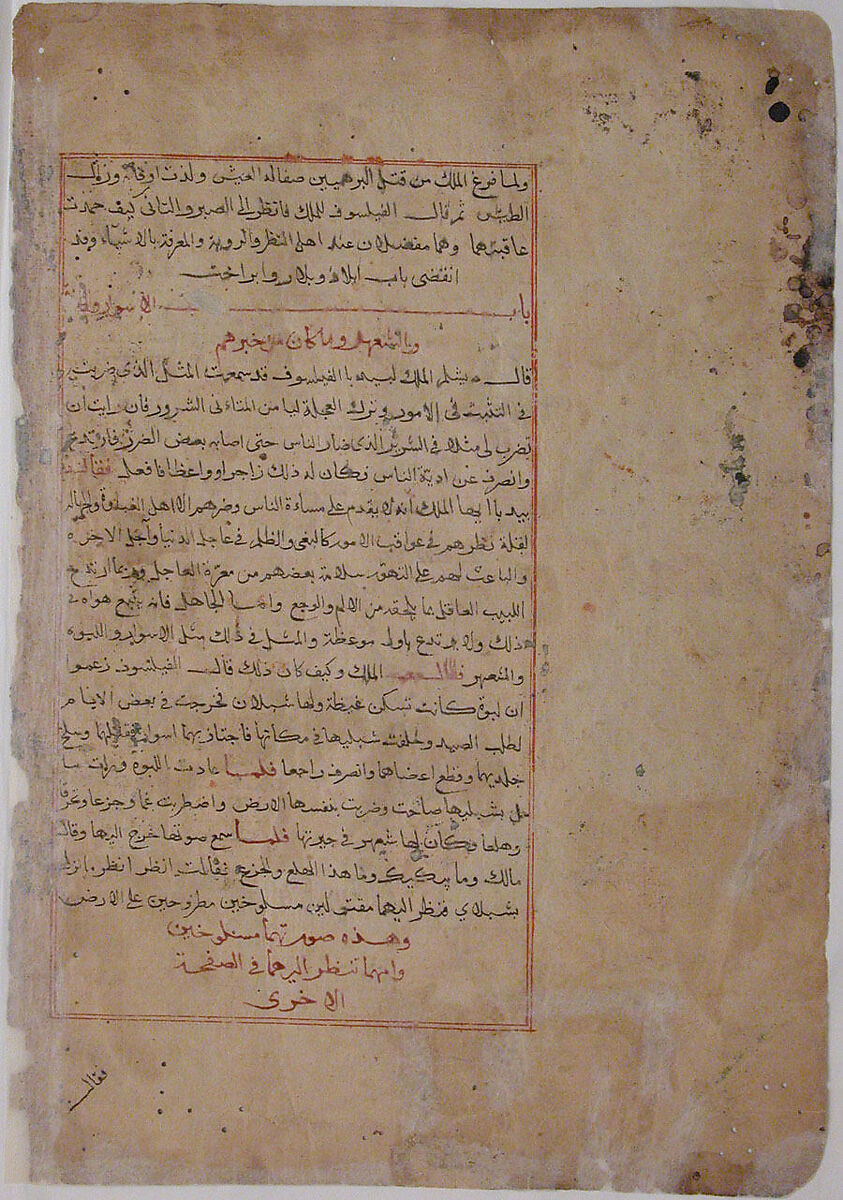 ولما فرغ الملك من قتل البرهميين صفا له العيش ولذت اوقاته وزال
الطيش ثم قال الفيلسوف للملك فانظر الى الصبر والتانى كيف حمدت
عاقبتهما وهما مفضلان عند اهل النظر والروية والمعرفة بالاشياء وقد
انقضى باب ايلاذ وبلار وابراخت
باب الاسوار واللبوة
والشعهر وما كان من خبرهم
قال دبشلم الملك لبيدبا الفيلسوف قد سمعت المثل الذى ضربت لى
فى التثبت فى الامور وترك العجلة لما من المتاءنى الشرور فان رايت ان
تضرب لى مثلا فى الشرير الذى ضار الناس حتى اصابه بعض الضرر فارتدع
وانصرف عن اذية الناس وكان له ذلك زاجرا وواعظا فافعل فقال
بيدبا ايها الملك انه لا يقدم على مساءة الناس وضرهم الا اهل الغباوة والجهالة
لقلة نظرهم فى عواقب الامور كالبغى والظلم فى عاجل الدنيا وآجل الاخرة
والباعث لهم على التهور سلامة بعضهم من معرة العاجل وربما ارتدع
اللبيب العاقل بما يلحقه من الالم والوجع وانما الجاهل فانه يتبع هواه فى
ذلك ولا يرتدع باول موعظة والمثل فى ذلك مثل الاسوار واللبوة
والشعهر فقال الملك وكيف كان ذلك قال الفيلسوف زعموا
ان لبوة كانت تسكن غيضة ولها شبلان فخرجت فى بعض الايام
لطلب الصيد وخلفت شبليها فى مكانها فاجتاز بهما اسوار فقتلهما وسلخ
جلديهما وقطع اعضاهما وانصرف راجعا فلما عادت اللبوة ورات ما
حل بشبليها صاحت وضربت بنفسها الارض واضطربت غما وجزعا وتحرقا
وهلعا وكان لها شعهر فى جيرتها فلما سمع صوتها خرج اليها وقال
مالك وما يبكيك وما هذا الهلع والجزع فقالت انظر انظر ما نزل
بشبلاي فنظر اليهما مقتولين مسلوخين مطروحين على الارض
وهذه صورتهما مسلوخين
وامهما تنظر اليهما فى الصفحة
الاخرى
فقالت